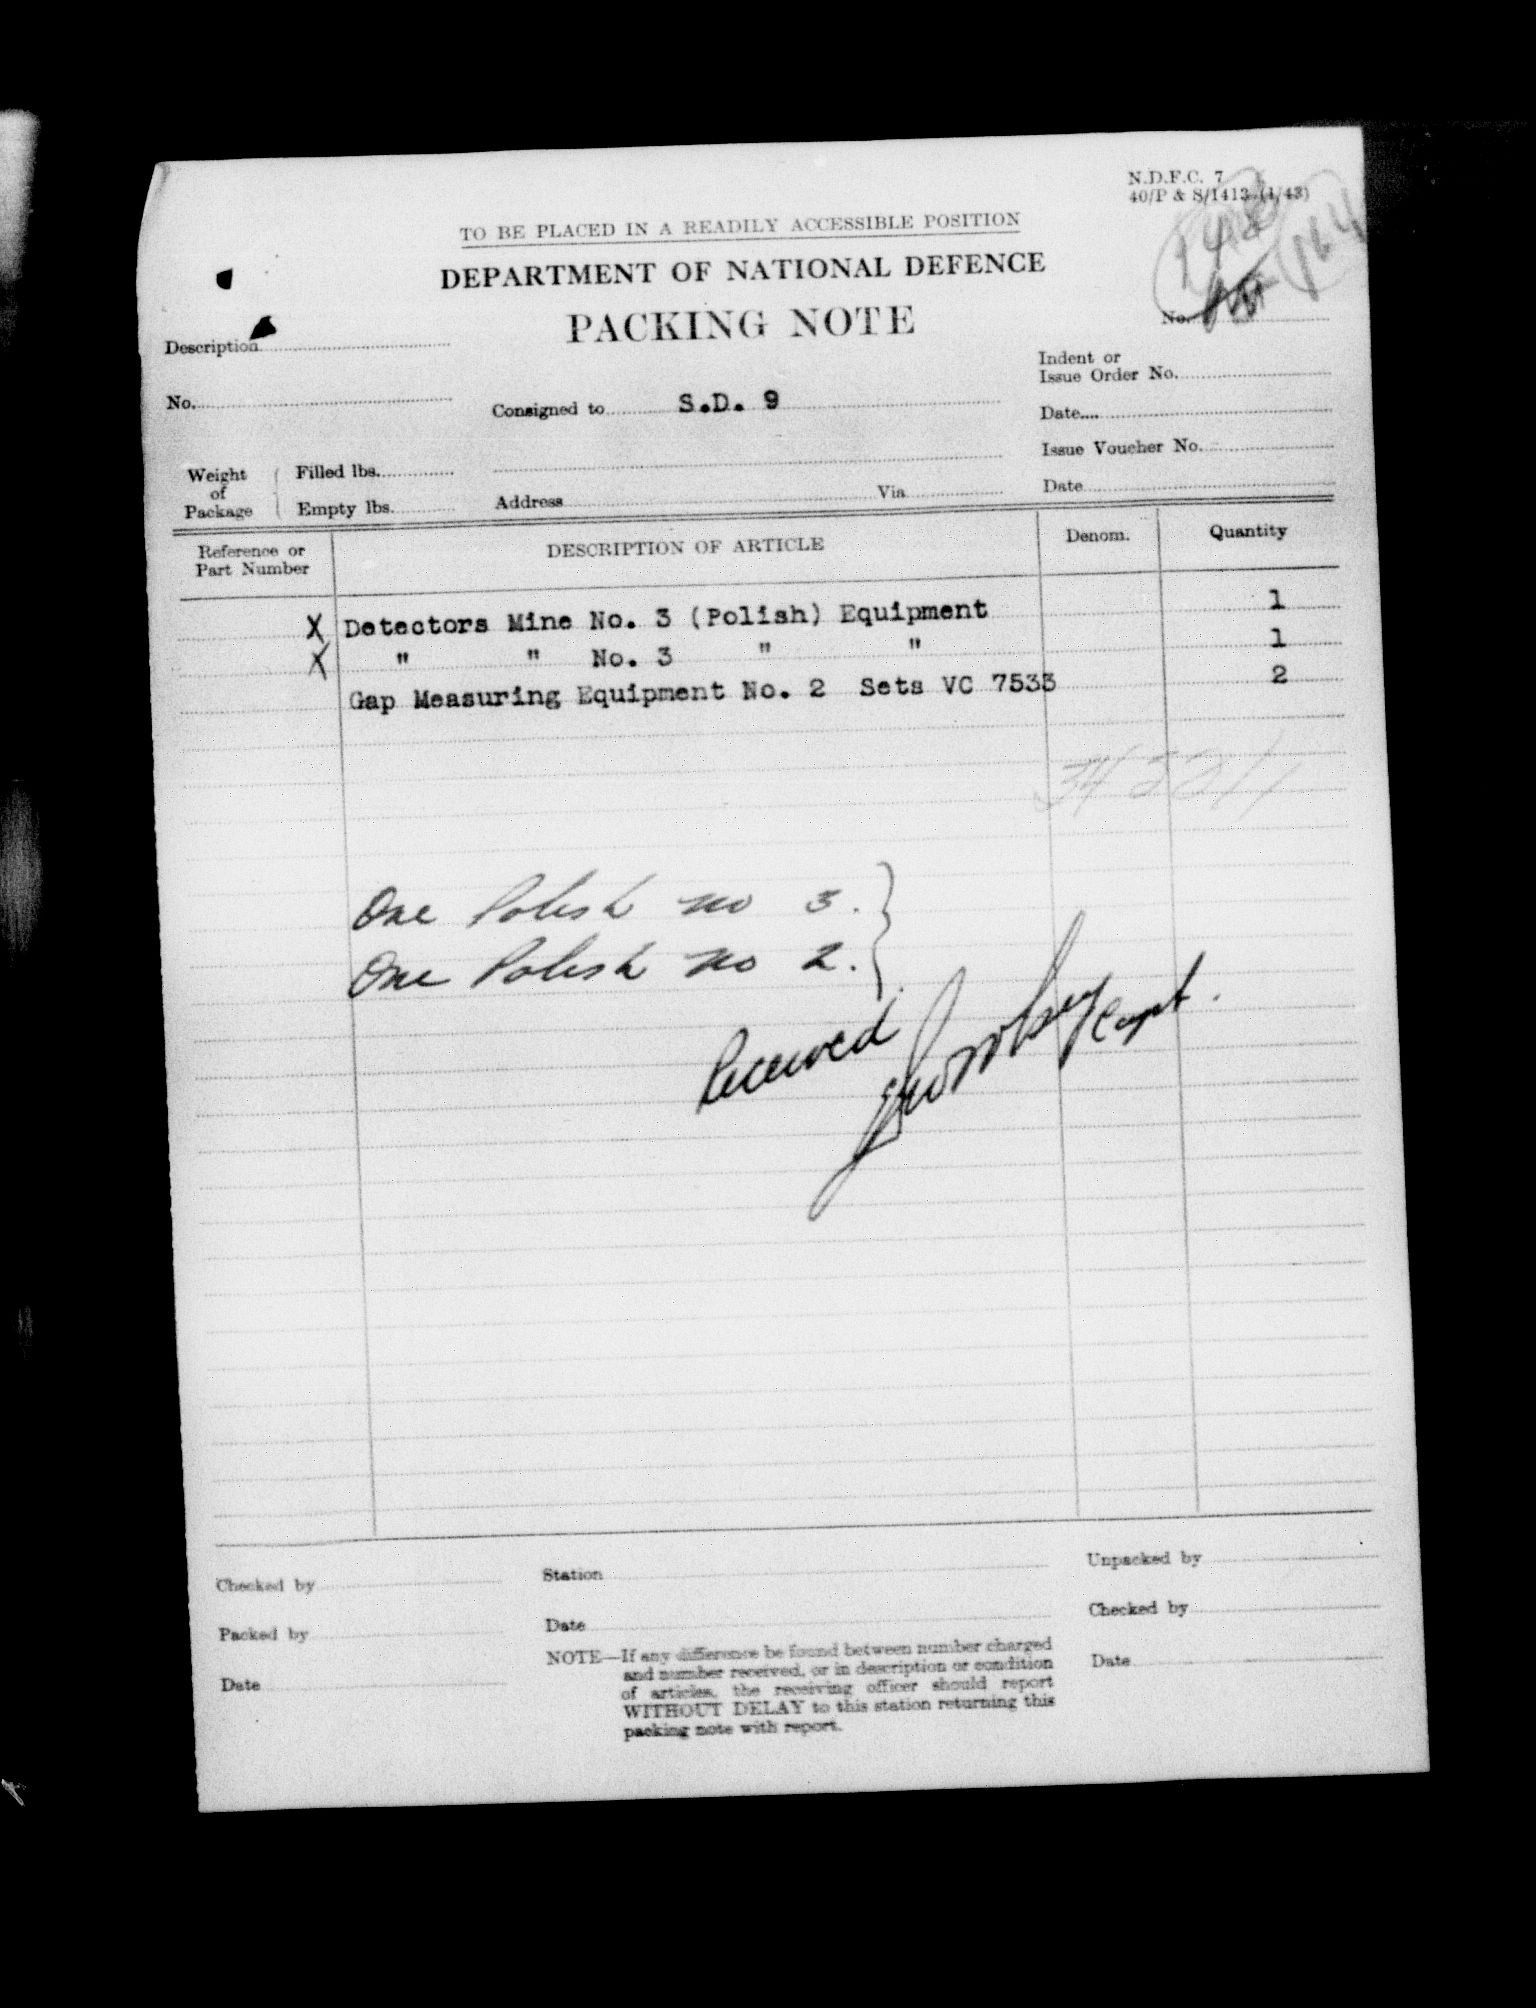 N.D.F.C. 7
40/P & S/1413 (1/43)
TO BE PLACED IN A READILY ACCESSIBLE POSITION
DEPARTMENT OF NATIONAL DEFENCE
PACKING NOTE
164
No.
Description
No.
Consigned to S.D. 9
Indent or
Issue Order No.
Date
Issue Voucher No.
Weight
of
Package
Filled lbs.
Empty lbs.
Address Via
Date
Reference or
Part Number
DESCRIPTION OF ARTICLE
Denom.
Quantity
X Detectors Mine No. 3 (Polish) Equipment 1
X " " No. 3 " " 1
Gap Measuring Equipment No. 2 Sets VC 7533 2
One Polish no 3.
One Polish no 2.
Received
Capt.
Checked by
Packed by
Date
Station
Date
NOTE—If any difference be found between number charged
and number received, or in description or condition
of articles, the receiving officer should report
WITHOUT DELAY to this station returning this
packing note with report.
Unpacked by
Checked by
Date